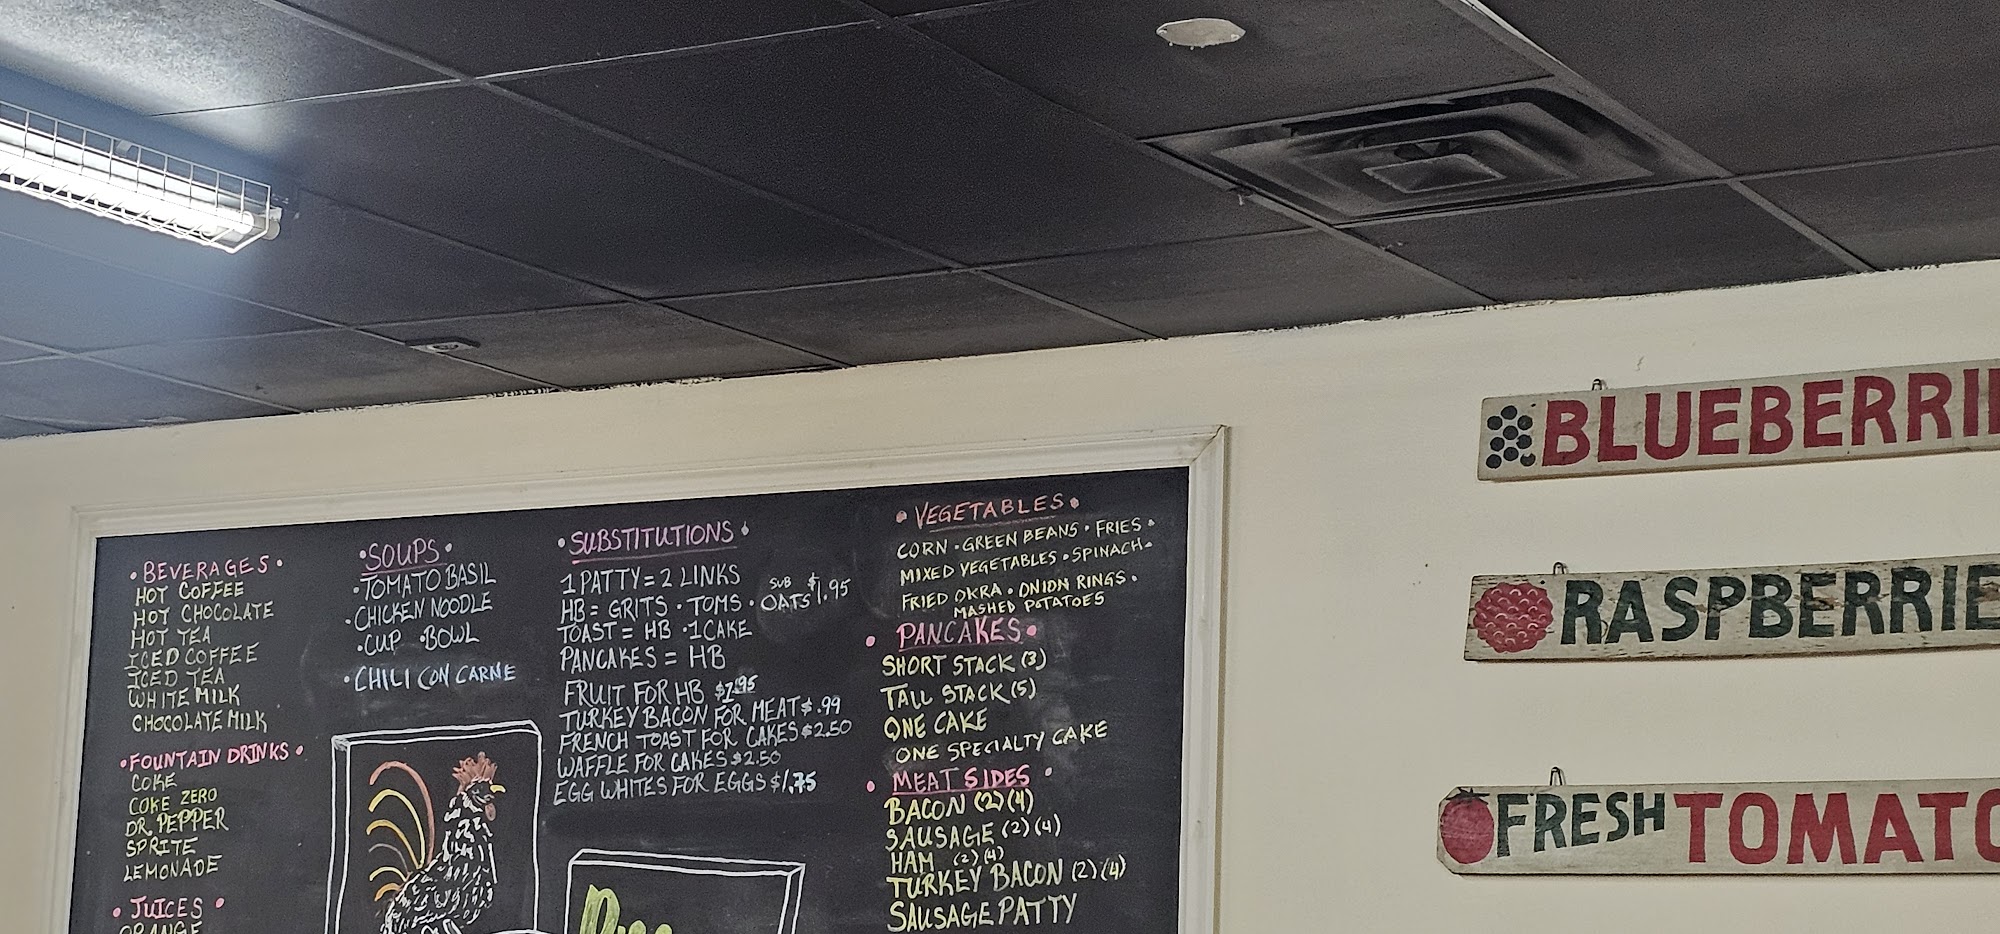 • BEVERAGES •
HOT COFFEE
HOT CHOCOLATE
HOT TEA
ICED COFFEE
ICED TEA
WHITE MILK
CHOCOLATE MILK
• FOUNTAIN DRINKS •
COKE
COKE ZERO
DR. PEPPER
SPRITE
LEMONADE
• JUICES •
ORANGE
• SOUPS •
• TOMATO BASIL
• CHICKEN NOODLE
• CUP • BOWL
• CHILI CON CARNE
• SUBSTITUTIONS •
1 PATTY = 2 LINKS
HB = GRITS • TOMS • OATS SUB $1.95
TOAST = HB • 1 CAKE
PANCAKES = HB
FRUIT FOR HB
TURKEY BACON FOR MEAT $.99
FRENCH TOAST FOR CAKES $2.50
WAFFLE FOR CAKES $2.50
EGG WHITES FOR EGGS $1.75
• VEGETABLES •
CORN • GREEN BEANS • FRIES •
MIXED VEGETABLES • SPINACH •
FRIED OKRA • ONION RINGS •
MASHED POTATOES
• PANCAKES •
SHORT STACK (3)
TALL STACK (5)
ONE CAKE
ONE SPECIALTY CAKE
• MEAT SIDES •
BACON (2)(4)
SAUSAGE (2)(4)
HAM (2)(4)
TURKEY BACON (2)(4)
SAUSAGE PATTY
BLUEBERRI
RASPBERRIE
FRESH TOMATO